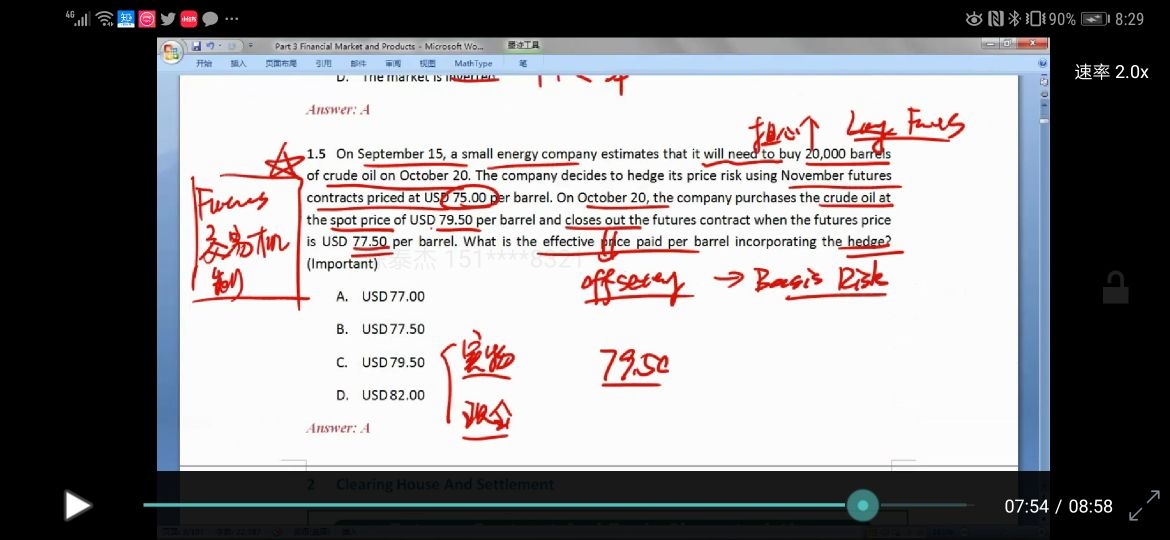 4G 知 90% 8:29
速率 2.0x
Part 3 Financial Market and Products - Microsoft Wo... 墨迹工具
开始 插入 页面布局 引用 邮件 审阅 视图 MathType 笔
D. The market is inverted
Answer: A
担心↑ Long Futures
1.5 On September 15, a small energy company estimates that it will need to buy 20,000 barrels
of crude oil on October 20. The company decides to hedge its price risk using November futures
contracts priced at USD 75.00 per barrel. On October 20, the company purchases the crude oil at
the spot price of USD 79.50 per barrel and closes out the futures contract when the futures price
is USD 77.50 per barrel. What is the effective price paid per barrel incorporating the hedge?
(Important)
泰杰 151****8321
Futures
交易机
制
offsetting → Basis Risk
A. USD77.00
B. USD77.50
C. USD79.50
D. USD82.00
实物
现金
79.50
Answer: A
2 Clearing House And Settlement
07:54 / 08:58